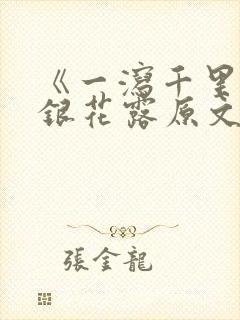 《一瀉千里
銀花露原文
張金龍